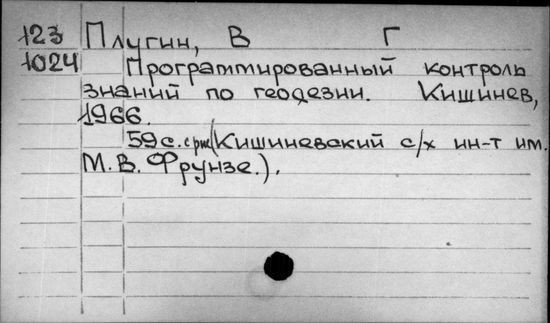 123 Плугин, В Г
1024 Программированный контроль
знаний по геодезии. Кишинев,
1966.
59 с. с рис (Кишиневский с/х ин-т им.
М. В. Фрунзе.).